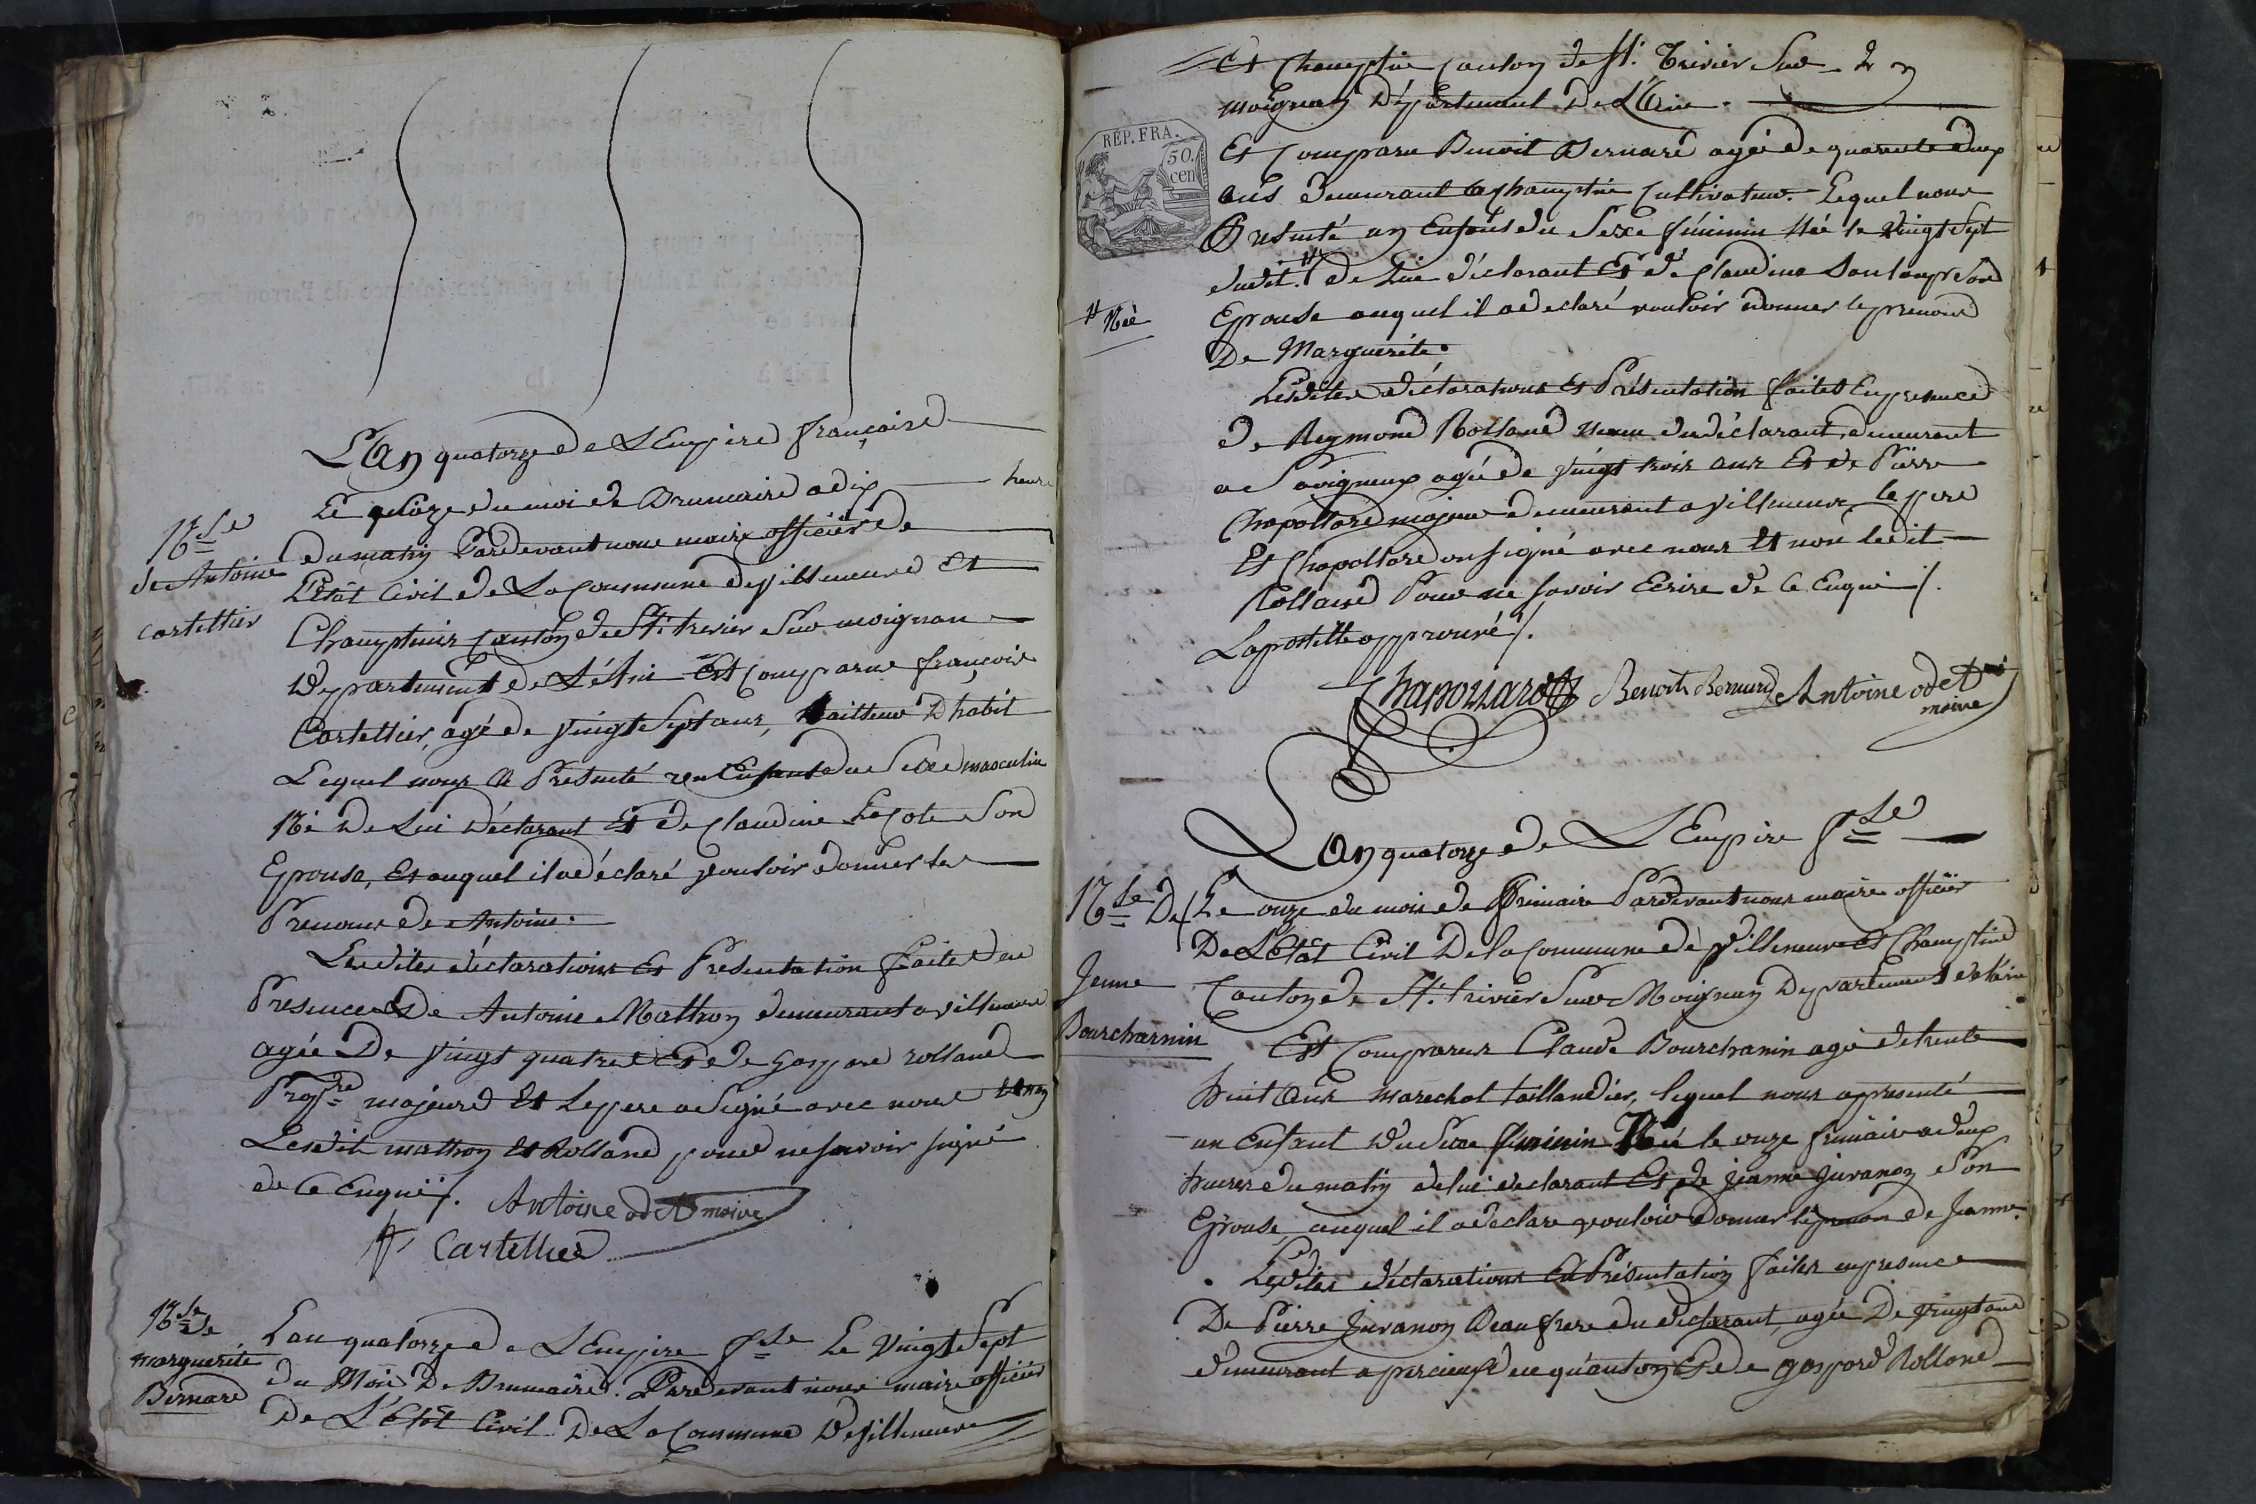 L'An quatorze de L'Empire françoise
Le quinze du moi de Brumaire a dix heure
du matin Pardevant nous maire officier de
L'Etat Civil de La Commune de Villeneuve Et
Champteins Canton de St. trivier Sur moignan
Departement de L'Ain Est Comparue françois
Cartellier, agé de Vingt Sept ans, tailleur D'habit
Lequel nous a Presenté un Enfant du Sexe masculin
Né De Lui Déclarant Et de Claudine Lacote Son
Epouse, Et auquel il a déclaré Vouloir donner le
Prenoms de Antoine.
Lesdites déclarations Et Presentation faite en
Presence De Antoine Mathon demeurant a Villeneuve
agée De Vingt quatre Et de Gaspard rolland
Prop.re majeurs Et Le pere a Signé avec nous Et non
Lesdits mathon Et Rolland pour ne Savoir Signé
de Ce Enquis /. Antoine odet maire
Cartellier
N.ce
de Antoine
Cartellier
N.ce de
marguerite
Bernard
L'an quatorze de L'Empire f.se Le Vingt Sept
du Mois De Brumaire. Pardevant nous maire officier
De L'Etat Civil De La Commune De Villeneuve
Et Champtein Canton de St. Trivier Sur
moignan Département De L'Ain.
REP. FRA.
50.
cen
Et Comparu Benoit Bernard agé de quarente deux
ans demeurant a Champtein Cultivateur. Lequel nous
a Presenté un Enfant du Sexe féminin Née le Vingt Sept
dudit. # de Lui déclarant Et de Claudine Son
# Née
Epouse auquel il a declaré vouloir donner le prenom
De Marguerite.
Lesdites déclarations Et Présentation faites En presence
de Reymond Rolland neveu du déclarant, demeurant
a Savigneux agé de Vingt trois ans Et de Pierre
Chapollard majeur demeurant a Villeneuve, le pere
Et Chapollard on Signé avec nous Et non ledit
Rolland Pour ne Savoir Ecrire de Ce Enquis /.
Lapostille approuvé /.
Chapollard Benoit Bernard Antoine odet
maire
L'An quatorze de L'Empire f.se
N.ce De
Jenne
Bourcharnin
Le onze du mois de frimaire Pardevant nous maire officier
De L'Etat Civil De la Commune de Villeneuve Et Champtein
Canton de St. trivier Sur Moignan Departement de l'ain
Est Comparus Claude Bourchanin agé de trente
huit Ans marechal taillandier, lequel nous a presenté
un Enfant du Sexe féminin Née le onze frimaire a deux
heures du matin de lui declarant Et de jeanne Juvanon Son
Epouse, auquel il a declare vouloir donner le prenom de Jeanne.
Lesdites déclarations Et Présentation faites en presence
De Pierre Juvanon Beau frere du declarant, agée De Vingt ans
demeurant a percieux du quanton Et de gaspard Rolland